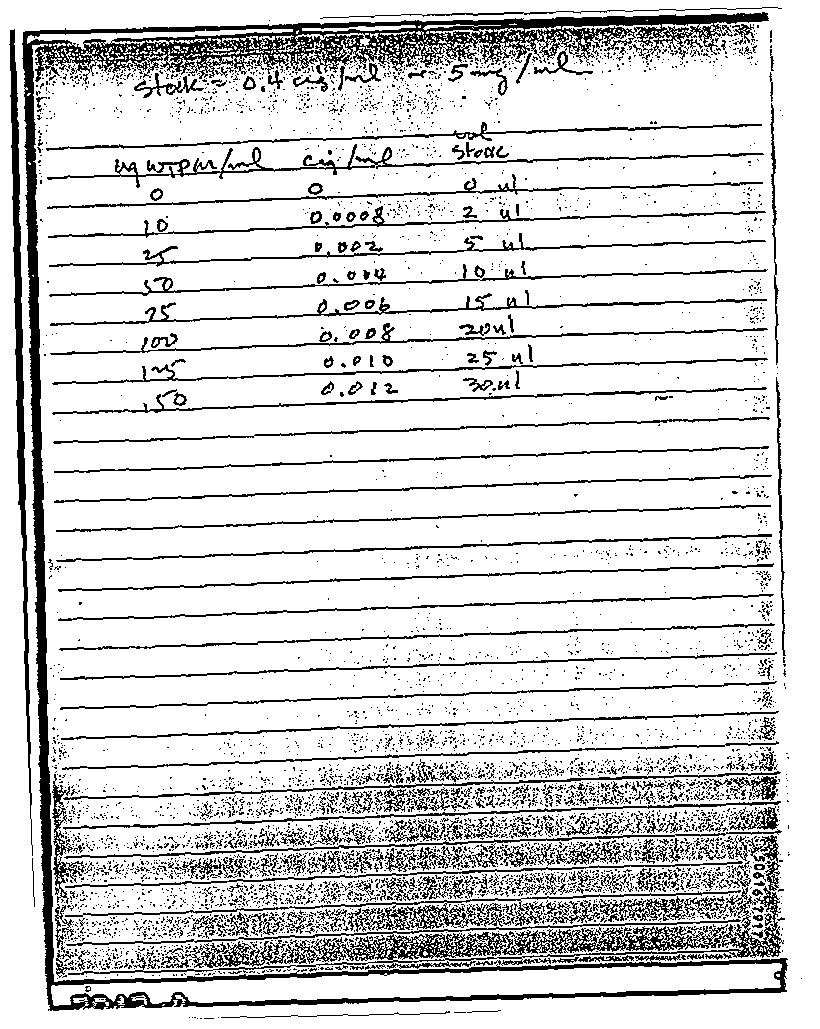 Stock = 0.4 cig/ml or 5 mg/ml
ug WTPM/ml cig/ml vol stock
0 0 0 ul
10 0.0008 2 ul
25 0.002 5 ul
50 0.004 10 ul
75 0.006 15 ul
100 0.008 20ul
125 0.010 25 ul
150 0.012 30 ul